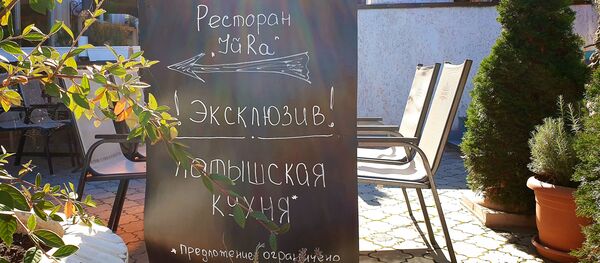 Ресторан
„Уйка“
! Эксклюзив!
Латышская
кухня*
*предложение ограничено